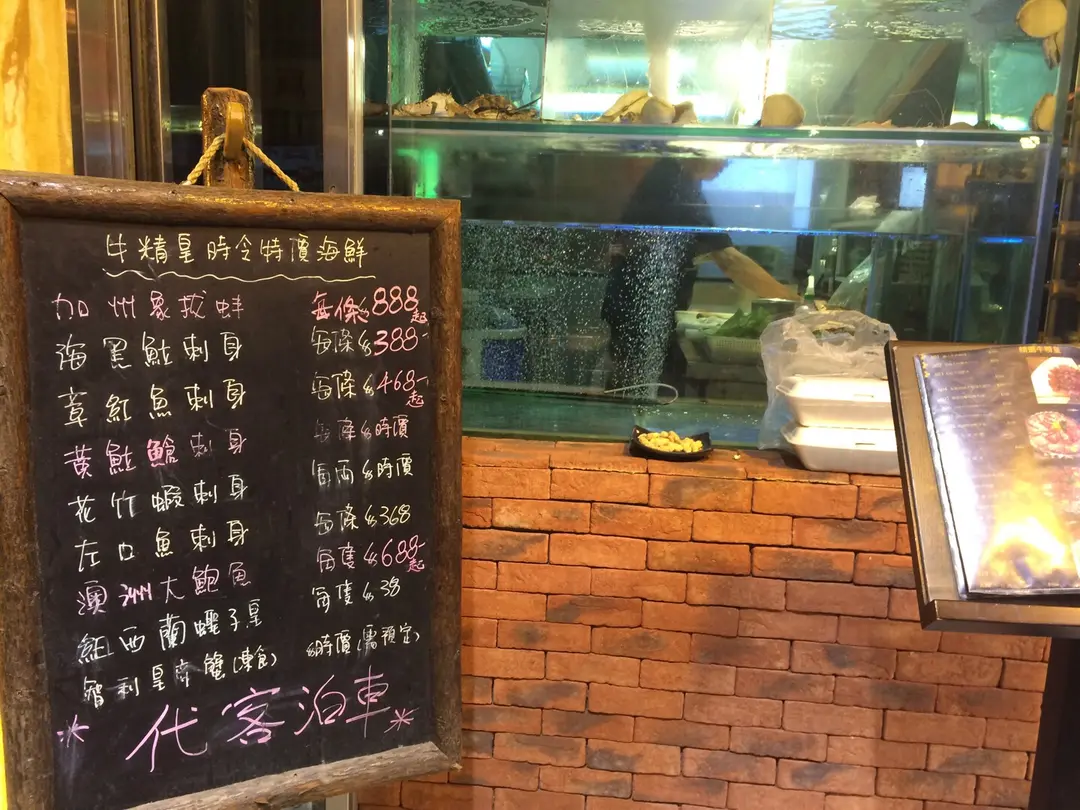 牛精皇時令特價海鮮
加州象拔蚌 每條$888起
海黑鮎刺身 每條$388-
章紅魚刺身 每條$468-起
黄鮎鱠刺身 每條$時價
花竹蝦刺身 每両$時價
左口魚刺身 每條$368
澳洲大鮑魚 每隻$688-起
紐西蘭蟶子皇 每隻$38
智利皇帝蟹(凍食) $時價(需預定)
*代客泊車*